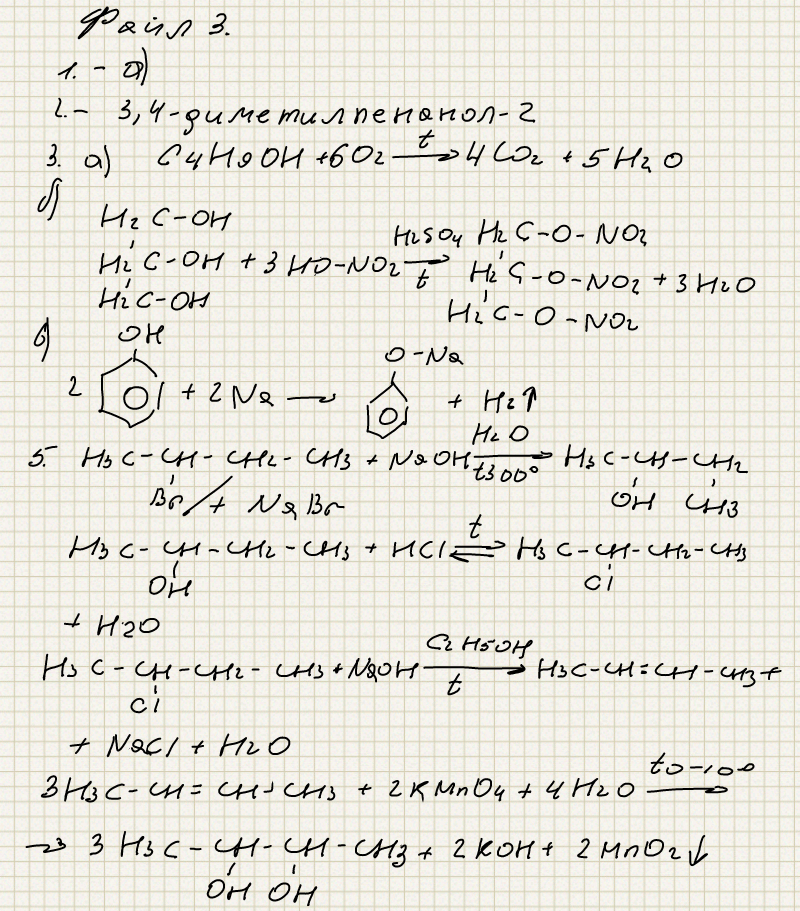 Файл 3.
1. - а)
2. - 3,4-диметилпенанол-2
3. а) C4H9OH + 6O2 t→ 4CO2 + 5H2O
б)
H2C-OH
H2C-OH + 3HO-NO2 H2SO4 t→ H2C-O-NO2
H2C-OH H2C-O-NO2 + 3H2O
H2C-O-NO2
в) OH O-Na
2 + 2Na → + H2↑
5. H3C-CH-CH2-CH3 + NaOH H2O t300°→ H3C-CH-CH2
Br / + NaBr OH CH3
H3C-CH-CH2-CH3 + HCl t⇌ H3C-CH-CH2-CH3
OH Cl
+ H2O
H3C-CH-CH2-CH3 + NaOH C2H5OH t→ H3C-CH=CH-CH3 +
Cl
+ NaCl + H2O
3H3C-CH=CH-CH3 + 2KMnO4 + 4H2O t0-10°→
→ 3H3C-CH-CH-CH3 + 2KOH + 2MnO2↓
OH OH